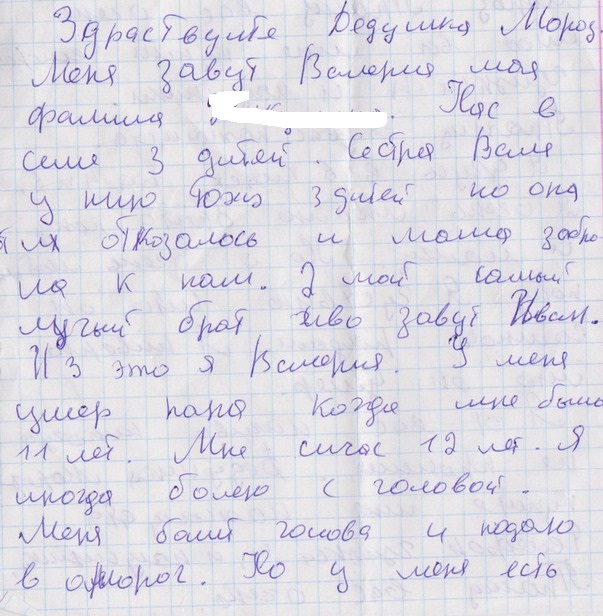 Здраствуите Дедушка Мороз.
Меня завут Валерия моя
фамілиа. Нас в
семе 3 дитей. Сестра Валя
у нию тоже 3 дитей но она
от их отказалось и мама забра
ла к нам. 2 мой самый
лучый брат ево завут Иван.
И 3 это я Валерия. У меня
умер папа когда мне было
11 лет. Мне сичас 12 лет. Я
иногда болею с головой.
Меня болит голова и падаю
в обморог. Но у меня есть